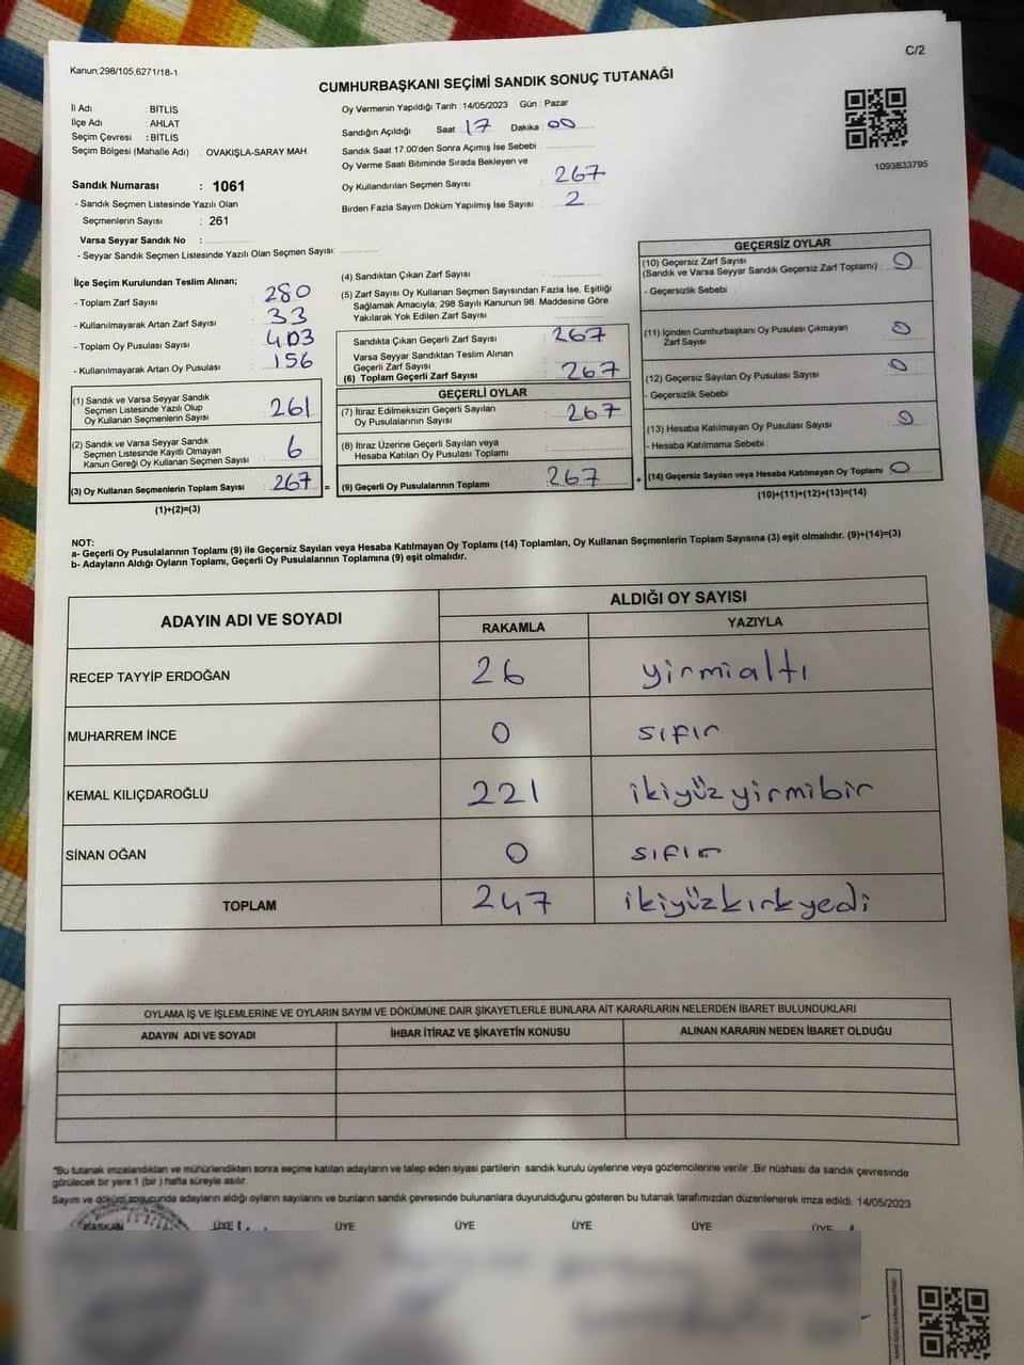 Kanun;298/105,6271/18-1
C/2
CUMHURBAŞKANI SEÇİMİ SANDIK SONUÇ TUTANAĞI
İl Adı : BİTLİS
İlçe Adı : AHLAT
Seçim Çevresi : BİTLİS
Seçim Bölgesi (Mahalle Adı) OVAKIŞLA-SARAY MAH
Sandık Numarası : 1061
- Sandık Seçmen Listesinde Yazılı Olan
Seçmenlerin Sayısı : 261
Varsa Seyyar Sandık No :
- Seyyar Sandık Seçmen Listesinde Yazılı Olan Seçmen Sayısı:
Oy Vermenin Yapıldığı Tarih : 14/05/2023 Gün : Pazar
Sandığın Açıldığı Saat 17 Dakika 00
Sandık Saat 17.00'den Sonra Açımış İse Sebebi
Oy Verme Saati Bitiminde Sırada Bekleyen ve
Oy Kullandırılan Seçmen Sayısı 267
Birden Fazla Sayım Döküm Yapılmış İse Sayısı 2
1093833795
İlçe Seçim Kurulundan Teslim Alınan;
- Toplam Zarf Sayısı 280
- Kullanılmayarak Artan Zarf Sayısı 33
- Toplam Oy Pusulası Sayısı 403
- Kullanılmayarak Artan Oy Pusulası 156
(1) Sandık ve Varsa Seyyar Sandık
Seçmen Listesinde Yazılı Olup
Oy Kullanan Seçmenlerin Sayısı 261
(2) Sandık ve Varsa Seyyar Sandık
Seçmen Listesinde Kayıtlı Olmayan
Kanun Gereği Oy Kullanan Seçmen Sayısı 6
(3) Oy Kullanan Seçmenlerin Toplam Sayısı 267 =
(1)+(2)=(3)
(4) Sandıktan Çıkan Zarf Sayısı
(5) Zarf Sayısı Oy Kullanan Seçmen Sayısından Fazla İse, Eşitliği
Sağlamak Amacıyla; 298 Sayılı Kanunun 98. Maddesine Göre
Yakılarak Yok Edilen Zarf Sayısı
Sandıkta Çıkan Geçerli Zarf Sayısı 267
Varsa Seyyar Sandıktan Teslim Alınan
Geçerli Zarf Sayısı
(6) Toplam Geçerli Zarf Sayısı 267
GEÇERLİ OYLAR
(7) İtiraz Edilmeksizin Geçerli Sayılan
Oy Pusulasının Sayısı 267
(8) İtiraz Üzerine Geçerli Sayılan veya
Hesaba Katılan Oy Pusulası Toplamı
(9) Geçerli Oy Pusulalarının Toplamı 267 +
GEÇERSİZ OYLAR
(10) Geçersiz Zarf Sayısı
(Sandık ve Varsa Seyyar Sandık Geçersiz Zarf Toplamı) 0
- Geçersizlik Sebebi
(11) İçinden Cumhurbaşkanı Oy Pusulası Çıkmayan
Zarf Sayısı 0
(12) Geçersiz Sayılan Oy Pusulası Sayısı 0
- Geçersizlik Sebebi
(13) Hesaba Katılmayan Oy Pusulası Sayısı 0
- Hesaba Katılmama Sebebi
(14) Geçersiz Sayılan veya Hesaba Katılmayan Oy Toplamı 0
(10)+(11)+(12)+(13)=(14)
NOT:
a- Geçerli Oy Pusulalarının Toplamı (9) ile Geçersiz Sayılan veya Hesaba Katılmayan Oy Toplamı (14) Toplamları, Oy Kullanan Seçmenlerin Toplam Sayısına (3) eşit olmalıdır. (9)+(14)=(3)
b- Adayların Aldığı Oyların Toplamı, Geçerli Oy Pusulalarının Toplamına (9) eşit olmalıdır.
ADAYIN ADI VE SOYADI
ALDIĞI OY SAYISI
RAKAMLA YAZIYLA
RECEP TAYYİP ERDOĞAN 26 yirmialtı
MUHARREM İNCE 0 sıfır
KEMAL KILIÇDAROĞLU 221 ikiyüzyirmibir
SİNAN OĞAN 0 sıfır
TOPLAM 247 ikiyüzkırkyedi
OYLAMA İŞ VE İŞLEMLERİNE VE OYLARIN SAYIM VE DÖKÜMÜNE DAİR ŞİKAYETLERLE BUNLARA AİT KARARLARIN NELERDEN İBARET BULUNDUKLARI
ADAYIN ADI VE SOYADI İHBAR İTİRAZ VE ŞİKAYETİN KONUSU ALINAN KARARIN NEDEN İBARET OLDUĞU
"Bu tutanak imzalandıktan ve mühürlendikten sonra seçime katılan adayların ve talep eden siyasi partilerin sandık kurulu üyelerine veya gözlemcilerine verilir. Bir nüshası da sandık çevresinde
görülecek bir yere 1 (bir) hafta süreyle asılır.
Sayım ve döküm sonucunda adayların aldığı oyların sayılarını ve bunların sandık çevresinde bulunanlara duyurulduğunu gösteren bu tutanak tarafımızdan düzenlenerek imza edildi. 14/05/2023
BAŞKAN ÜYE ÜYE ÜYE ÜYE ÜYE ÜYE